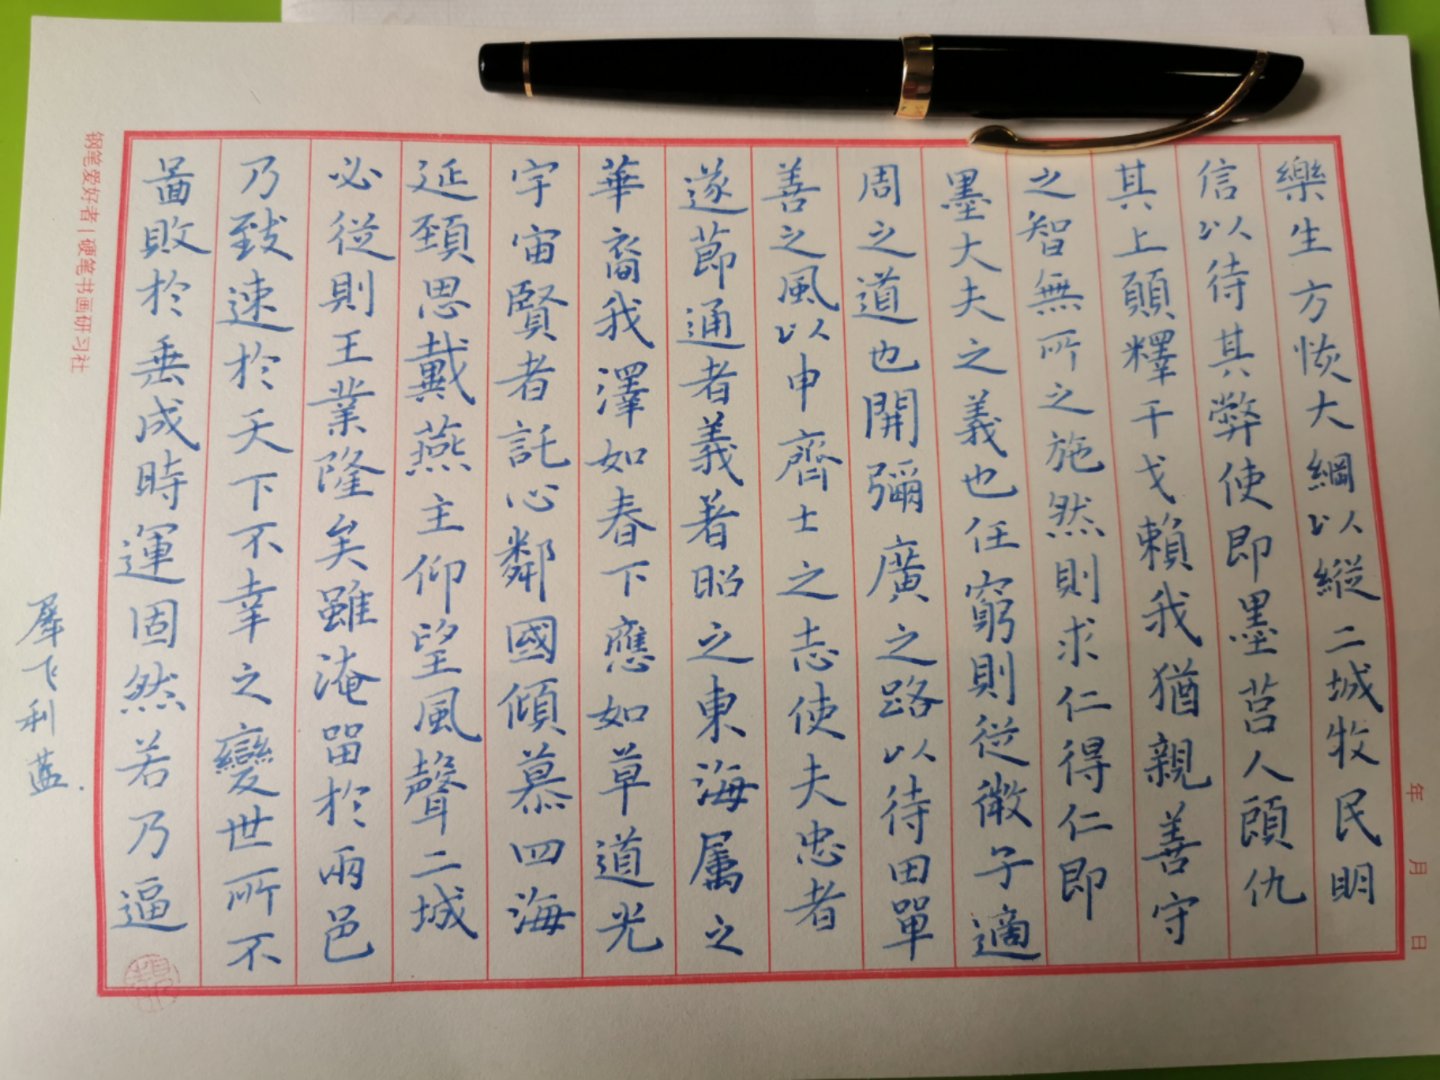 樂生方恢大綱以縱二城牧民明
信以待其弊使即墨莒人顧仇
其上願釋干戈賴我猶親善守
之智無所之施然則求仁得仁即
墨大夫之義也任窮則從微子適
周之道也開彌廣之路以待田單
善之風以申齊士之志使夫忠者
遂節通者義著昭之東海屬之
華裔我澤如春下應如草道光
宇宙賢者託心鄰國傾慕四海
延頸思戴燕主仰望風聲二城
必從則王業隆矣雖淹留於兩邑
乃致速於天下不幸之變世所不
啚敗於垂成時運固然若乃逼
犀飞利蓝.
钢笔爱好者|硬笔书画研习社
年 月 日